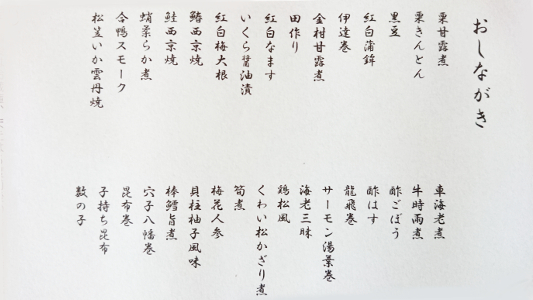 おしながき
栗甘露煮
栗きんとん
黒豆
紅白蒲鉾
伊達巻
金柑甘露煮
田作り
紅白なます
いくら醤油漬
紅白梅大根
鰆西京焼
鮭西京焼
蛸柔らか煮
合鴨スモーク
松笠いか雲丹焼
車海老煮
牛時雨煮
酢ごぼう
酢はす
龍飛巻
サーモン湯葉巻
海老三昧
鶏松風
くわい松かざり煮
筍煮
梅花人参
貝柱柚子風味
棒鱈旨煮
穴子八幡巻
昆布巻
子持ち昆布
数の子